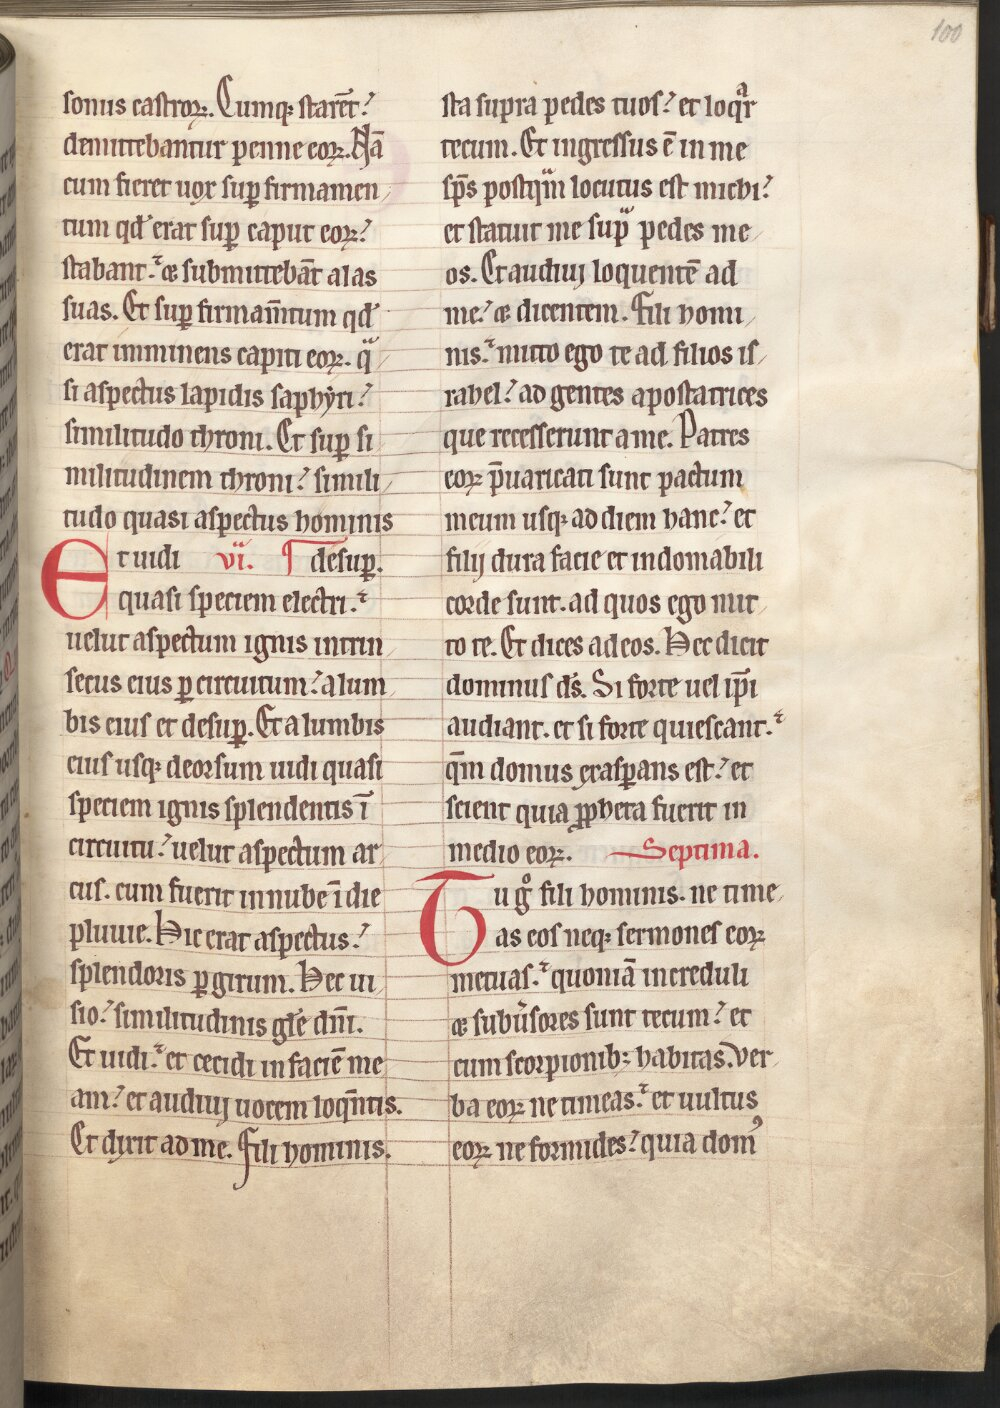 100
sonus castroꝝ. Cumqꝫ starēt?
demittebantur penne eoꝝ. Nā
cum fieret uox suꝑ firmamen
tum qd' erat suꝑ caput eoꝝ?
stabant. & submittebāt alas
suas. Et suꝑ firmam̄tum qd'
erat imminens capiti eoꝝ. qͣ
si aspectus lapidis saphyri?
similitudo throni. Et suꝑ si
militudinem throni? simili
tudo quasi aspectus hominis
Et uidi vi. desuꝑ.
quasi speciem electri.
uelut aspectum ignis intrin
secus eius ꝑ circuitum? a lum
bis eius et desuꝑ. Et a lumbis
eius usqꝫ deorsum uidi quasi
speciem ignis splendentis ī
circuitu? uelut aspectum ar
cus. cum fuerit in nube ī die
pluuie. Hic erat aspectus?
splendoris ꝑ girum. Hec ui
sio? similitudinis gl̄e dn̄i.
Et uidi. et cecidi in faciē me
am? et audiuij uocem loqn̄tis.
Et dixit ad me. Fili hominis.
sta supra pedes tuos? et loqͣr
tecum. Et ingressus ē in me
sp̄s postqͣm locutus est michi?
et statuit me supͣ pedes me
os. Et audiuij loquentē ad
me? & dicentem. Fili homi
nis. mitto ego te ad filios is
rahel? ad gentes apostatrices
que recesserunt a me. Patres
eoꝝ p̄uaricati sunt pactum
meum usqꝫ ad diem hanc? et
filij dura facie et indomabili
corde sunt. ad quos ego mit
to te. Et dices ad eos. Hec dicit
dominus ds̄. Si forte uel ip̄i
audiant. et si forte quiescant.
qm̄ domus exasꝑans est? et
scient quia ꝓpheta fuerit in
medio eoꝝ. Septima.
Tu gͦ fili hominis. ne time
as eos neqꝫ sermones eoꝝ
metuas. quoniā increduli
& subūsores sunt tecum? et
cum scorpionibꝫ habitas. Ver
ba eoꝝ ne timeas. et uultus
eoꝝ ne formides? quia domꝰ